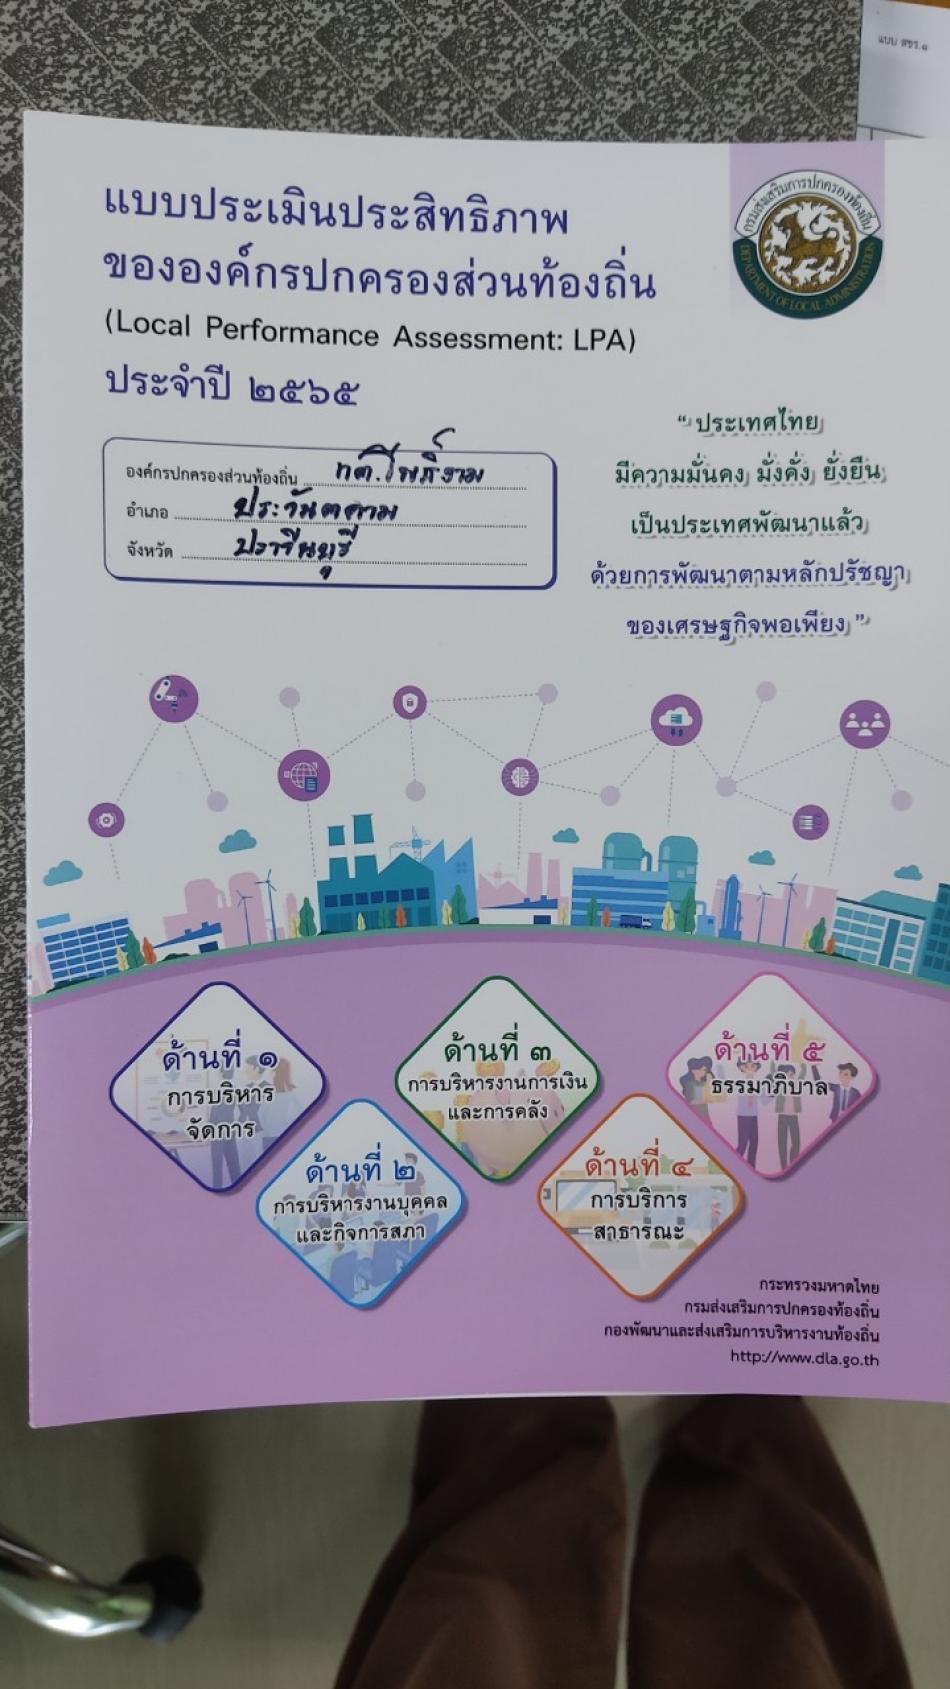 แบบ สขร.๑
แบบประเมินประสิทธิภาพ
ขององค์กรปกครองส่วนท้องถิ่น
(Local Performance Assessment: LPA)
ประจำปี ๒๕๖๕
กรมส่งเสริมการปกครองท้องถิ่น
DEPARTMENT OF LOCAL ADMINISTRATION
องค์กรปกครองส่วนท้องถิ่น ทต.โพธิ์งาม
อำเภอ ประจันตคาม
จังหวัด ปราจีนบุรี
“ ประเทศไทย
มีความมั่นคง มั่งคั่ง ยั่งยืน
เป็นประเทศพัฒนาแล้ว
ด้วยการพัฒนาตามหลักปรัชญา
ของเศรษฐกิจพอเพียง ”
ด้านที่ ๑
การบริหาร
จัดการ
ด้านที่ ๒
การบริหารงานบุคคล
และกิจการสภา
ด้านที่ ๓
การบริหารงานการเงิน
และการคลัง
ด้านที่ ๔
การบริการ
สาธารณะ
ด้านที่ ๕
ธรรมาภิบาล
กระทรวงมหาดไทย
กรมส่งเสริมการปกครองท้องถิ่น
กองพัฒนาและส่งเสริมการบริหารงานท้องถิ่น
http://www.dla.go.th